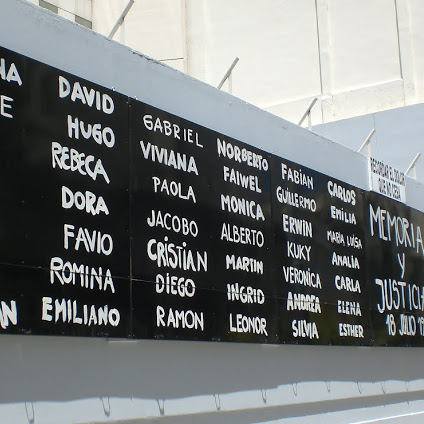 DAVID
HUGO
REBECA
DORA
FAVIO
ROMINA
EMILIANO
GABRIEL
VIVIANA
PAOLA
JACOBO
CRISTIAN
DIEGO
RAMON
NORBERTO
FAIWEL
MONICA
ALBERTO
MARTIN
INGRID
LEONOR
FABIAN
GUILLERMO
ERWIN
KUKY
VERONICA
ANDREA
SILVIA
CARLOS
EMILIA
MARIA LUISA
ANALIA
CARLA
ELENA
ESTHER
RECORDAR EL DOLOR
QUE NO CESA
MEMORIA
Y
JUSTICIA
18 JULIO